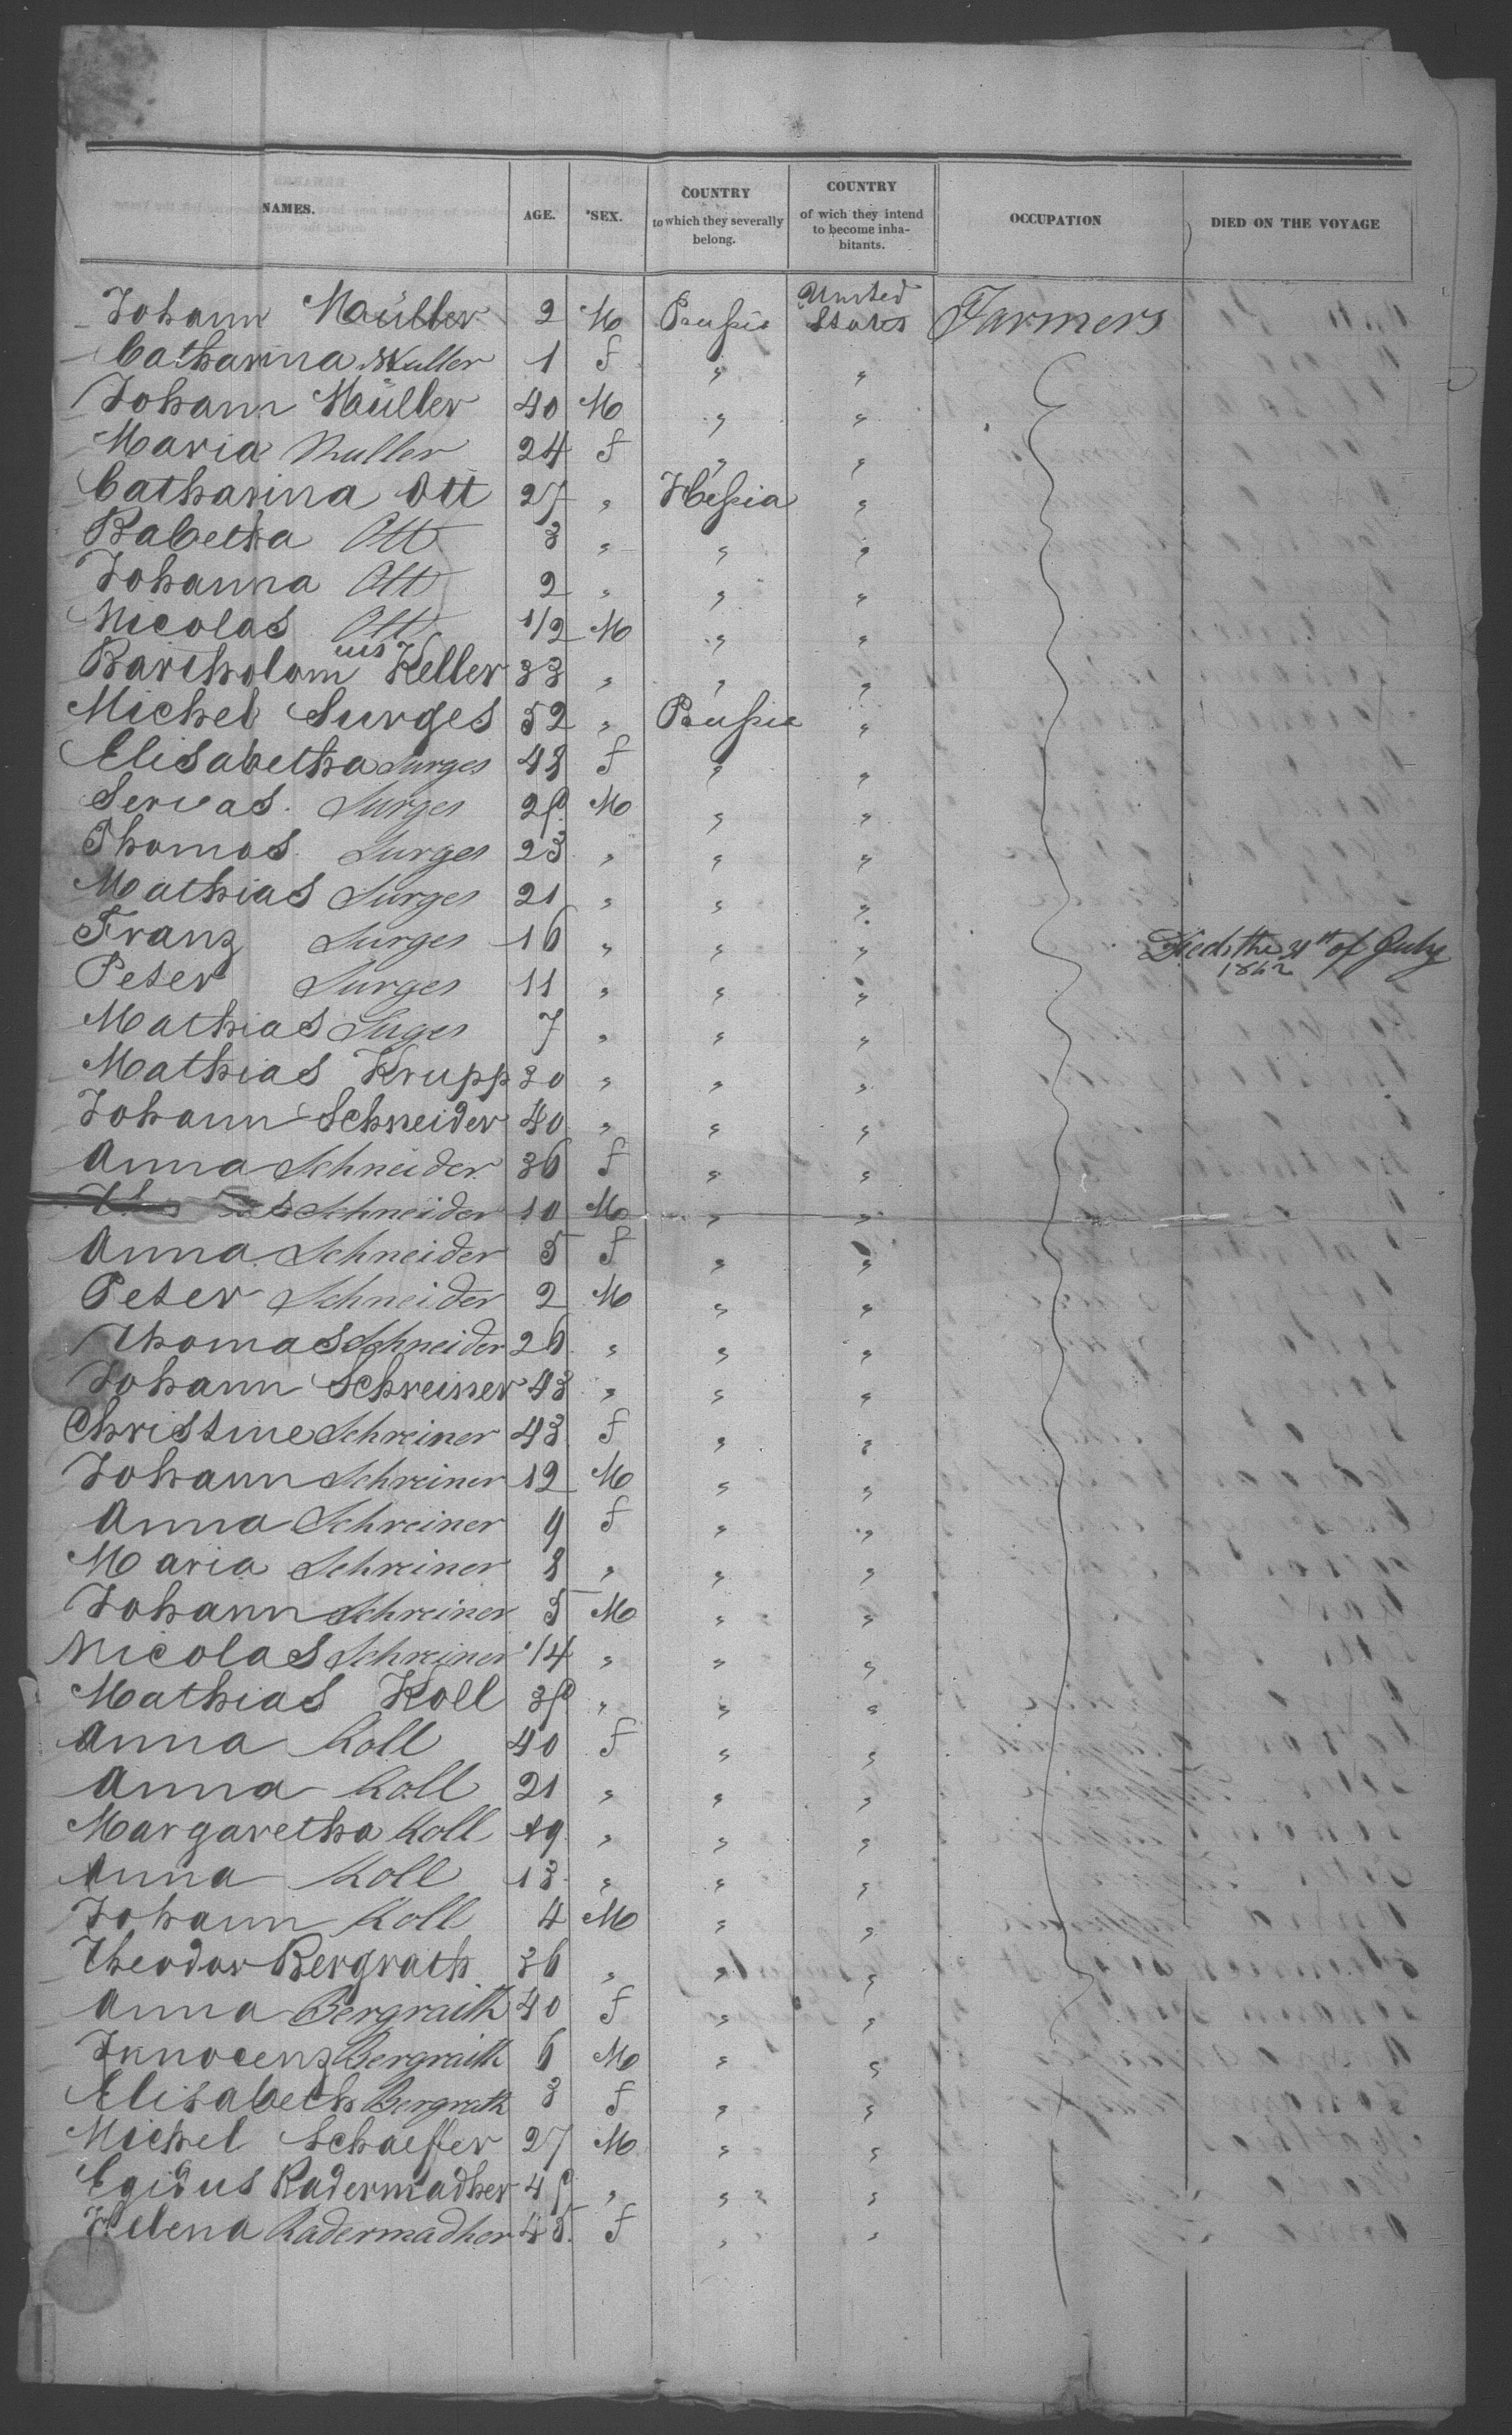 NAMES. AGE. SEX. COUNTRY to which they severally belong. COUNTRY of wich they intend to become inhabitants. OCCUPATION DIED ON THE VOYAGE
Johann Müller 2 M Prussia United States Farmers
Catharina Muller 1 f " "
Johann Müller 40 M " "
Maria Muller 24 f " "
Catharina Ott 27 " Hessia "
Babetha Ott 3 " " "
Johanna Ott 2 " " "
Nicolas Ott 1/2 M " "
Bartholomeus Keller 33 " " "
Michel Surges 52 " Prussia "
Elisabetha Surges 48 f " "
Servas Surges 25 M " "
Thomas Surges 23 " " "
Mathias Surges 21 " " "
Franz Surges 16 " " " Died the 31st of July 1862
Peter Surges 11 " " "
Mathias Suges 7 " " "
Mathias Krupp 30 " " "
Johann Schneider 40 " " "
Anna Schneider 36 f " "
Schneider 10 M " "
Anna Schneider 5 f " "
Peter Schneider 2 M " "
Thomas Schneider 26 " " "
Johann Schreiner 43 " " "
Christine Schreiner 43 f " "
Johann Schreiner 12 M " "
Anna Schreiner 9 f " "
Maria Schreiner 8 " " "
Johann Schreiner 5 M " "
Nicolas Schreiner 1/4 " " "
Mathias Koll " " "
Anna Koll 40 f " "
Anna Koll 21 " " "
Margaretha Koll 19 " " "
Anna Koll 13 " " "
Johann Koll 4 M " "
Theodor Bergrath 36 " " "
Anna Bergrath 40 f " "
Innocenz Bergrath 6 M " "
Elisabeth Bergrath 3 f " "
Michel Schaeffer 27 M " "
Egidus Radermadher " " "
Helena Radermadher 45 f " "